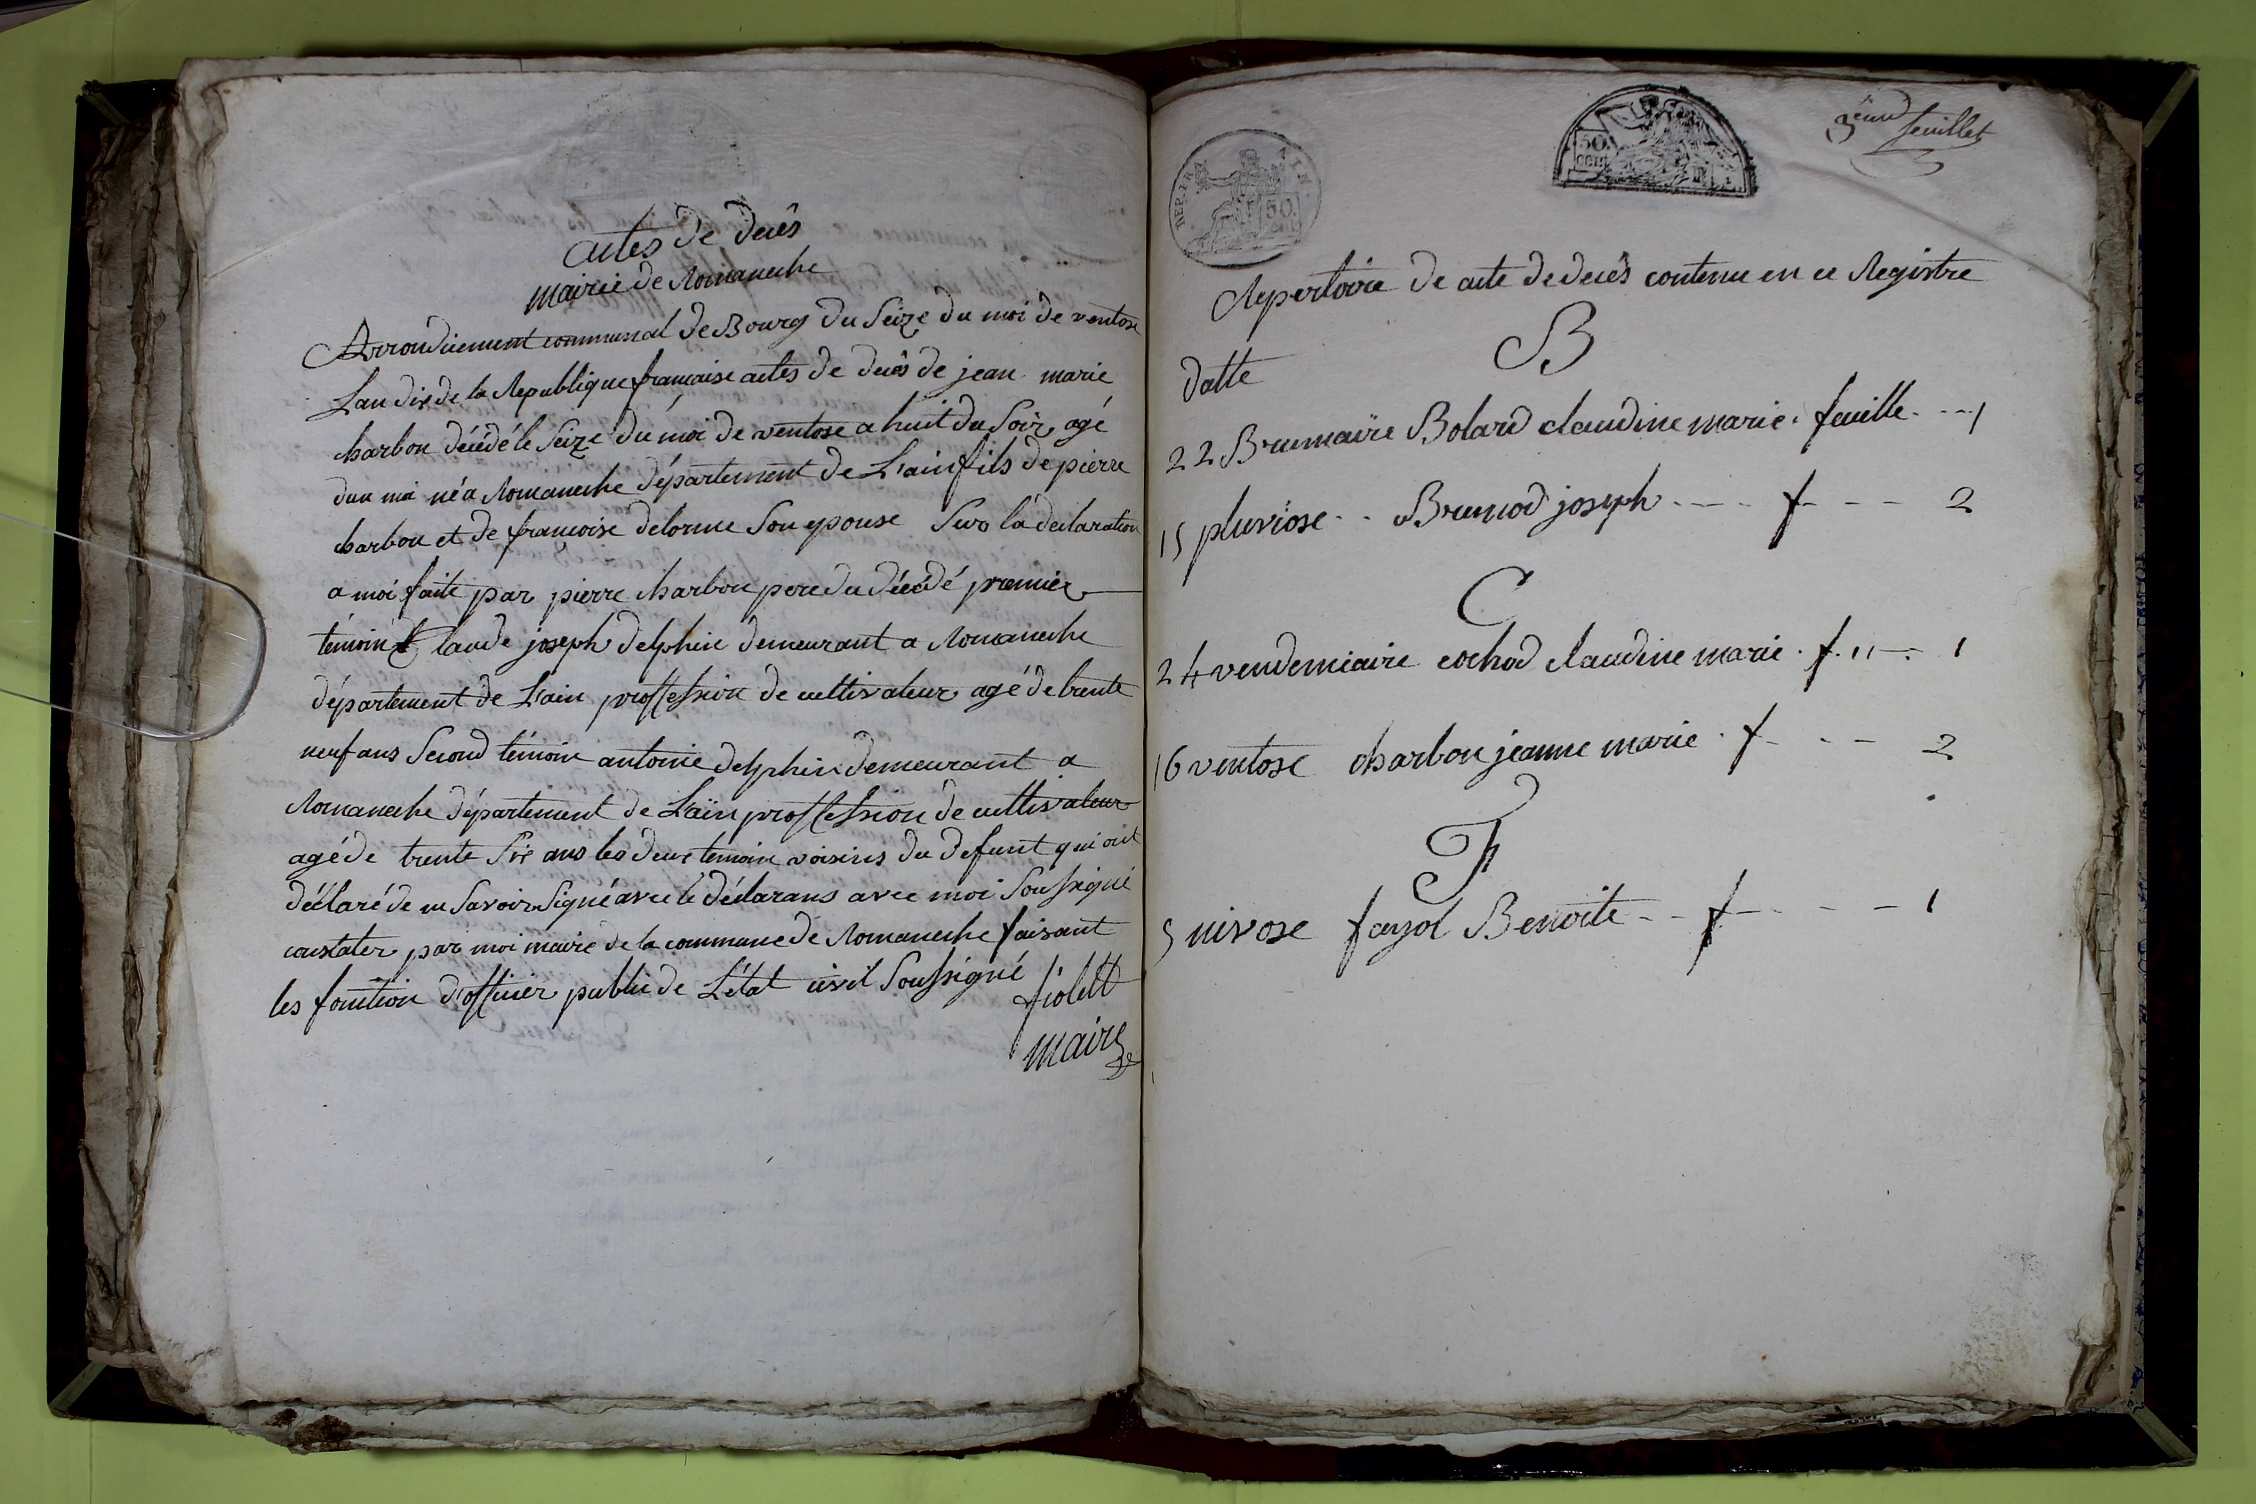 actes de decès
mairie de Romaneche
Arrondicement communal de Bourg du Seize du moi de ventose
Lan dix de la Republique française actes de decès de jean marie
charbon décédé le Seize du moi de ventose a huit du Soir agé
dun moi né a Romaneche département de L'ain fils de pierre
charbon et de françoise delorme Son epouse Sur la declaration
a moi faite par pierre charbon pere du décédé premier
témoin Claude joseph delphin demeurant a Romaneche
département de L'ain proffession de cultivateur agé de trente
neuf ans Second témoin antoine delphin demeurant a
Romaneche département de L'ain proffession de cultivateur
agé de trente Six ans les deux temoin voisins du defunt qui ont
déclaré de ne Savoir Signé avec le déclarans avec moi Soussigné
constater par moi maire de la commune de Romaneche faisant
les fonction d'officier public de L'état civil Soussigné
fiolett
maire
3eme feuillet
REP. FRA
AIN.
50.
cent
50.
CENT
Repertoire de acte de decès contenu en ce Registre
B
datte
22 Brumaire Bolard claudine marie. feuille. - - - 1
15 pluviose - - Brunod joseph - - - - f - - - 2
C
24 vendemiaire cochod claudine marie. f. - - - 1
16 ventose charbon jeanne marie. f - - - 2
F
5 nivose fayol Benoite - - f - - - - 1